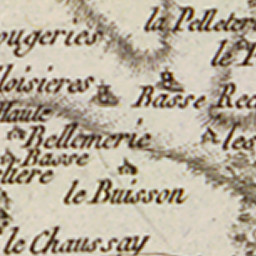 la Pelleter
ougeries
le
loisieres
Basse Rec
Haute
Bellemerie
les
Basse
liere
le Buisson
le Chaussay